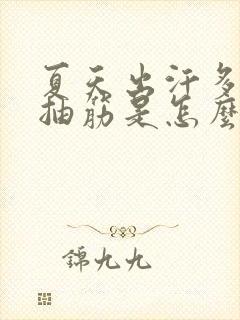 夏天出汗多
抽筋是怎麼
錦九九